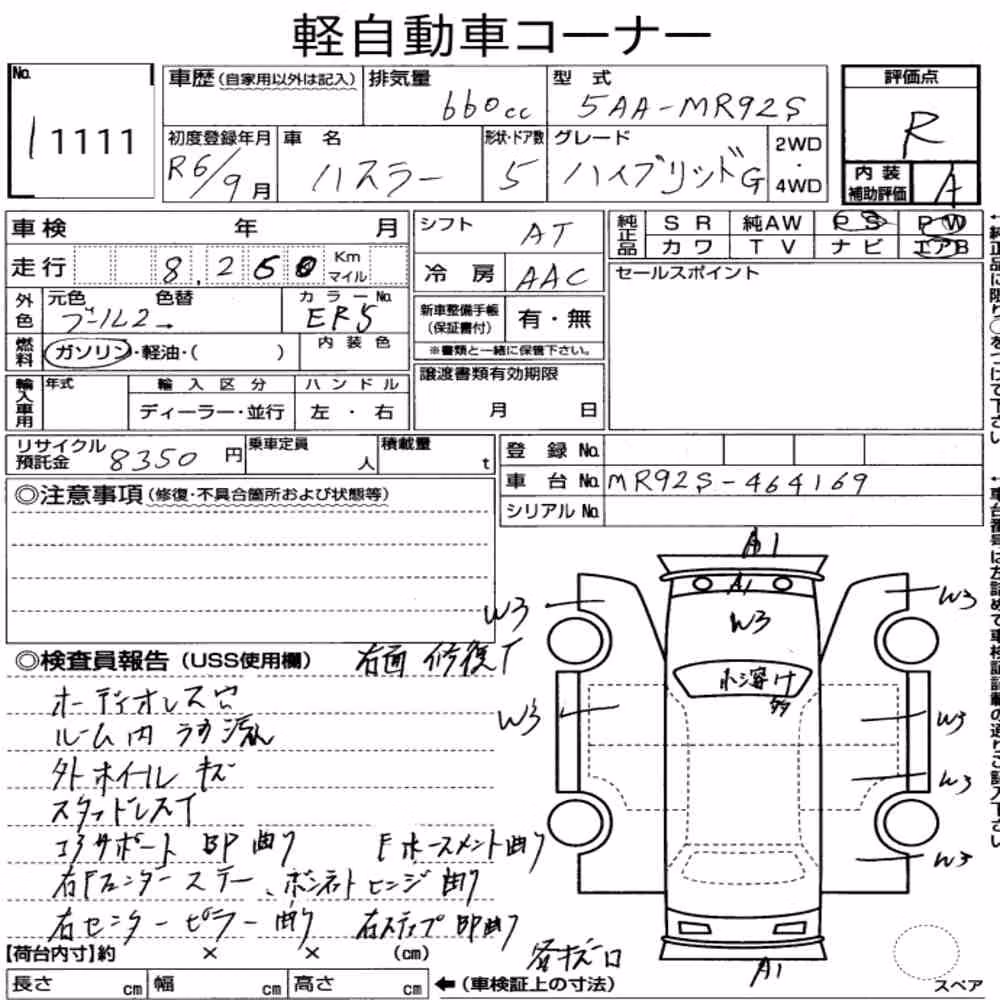 軽自動車コーナー
No. 11111
車歴(自家用以外は記入) 排気量 660cc 型式 5AA-MR92S 評価点 R
初度登録年月 R6/9月 車名 ハスラー 形状・ドア数 5 グレード ハイブリッドG 2WD・4WD 内装補助評価 A
車検 年 月 シフト AT 純正品 SR 純AW PS PW
カワ TV ナビ エアB
走行 8,260 Km マイル 冷房 AAC セールスポイント
外色 元色 色替 カラーNo. ER5
新車整備手帳(保証書付) 有・無
※書類と一緒に保管下さい。
燃料 ガソリン・軽油・( ) 内装色
譲渡書類有効期限 月 日
輸入車用 年式 輸入区分 ハンドル
ディーラー・並行 左・右
リサイクル預託金 8350円 乗車定員 人 積載量 t
登録No.
車台No. MR92S-464169
シリアルNo.
◎注意事項(修復・不具合箇所および状態等)
A1
A1
W3
W3
W3
W3
W3
W3
W3
◎検査員報告(USS使用欄) 右面 修復
オーディオレス穴
ルーム内
外ホイール キズ
スタッドレスT
コアサポート BP曲り Fホースメント曲り
右Fフェンダーステー、ボンネットヒンジ曲り
右センターピラー曲り 右ステップBP曲り
A1
【荷台内寸】約 × × (cm)
長さ cm 幅 cm 高さ cm ←(車検証上の寸法)
スペア
←純正品に限り○をつけて下さい
←車台番号は左詰めで車検証記載の通りご記入下さい